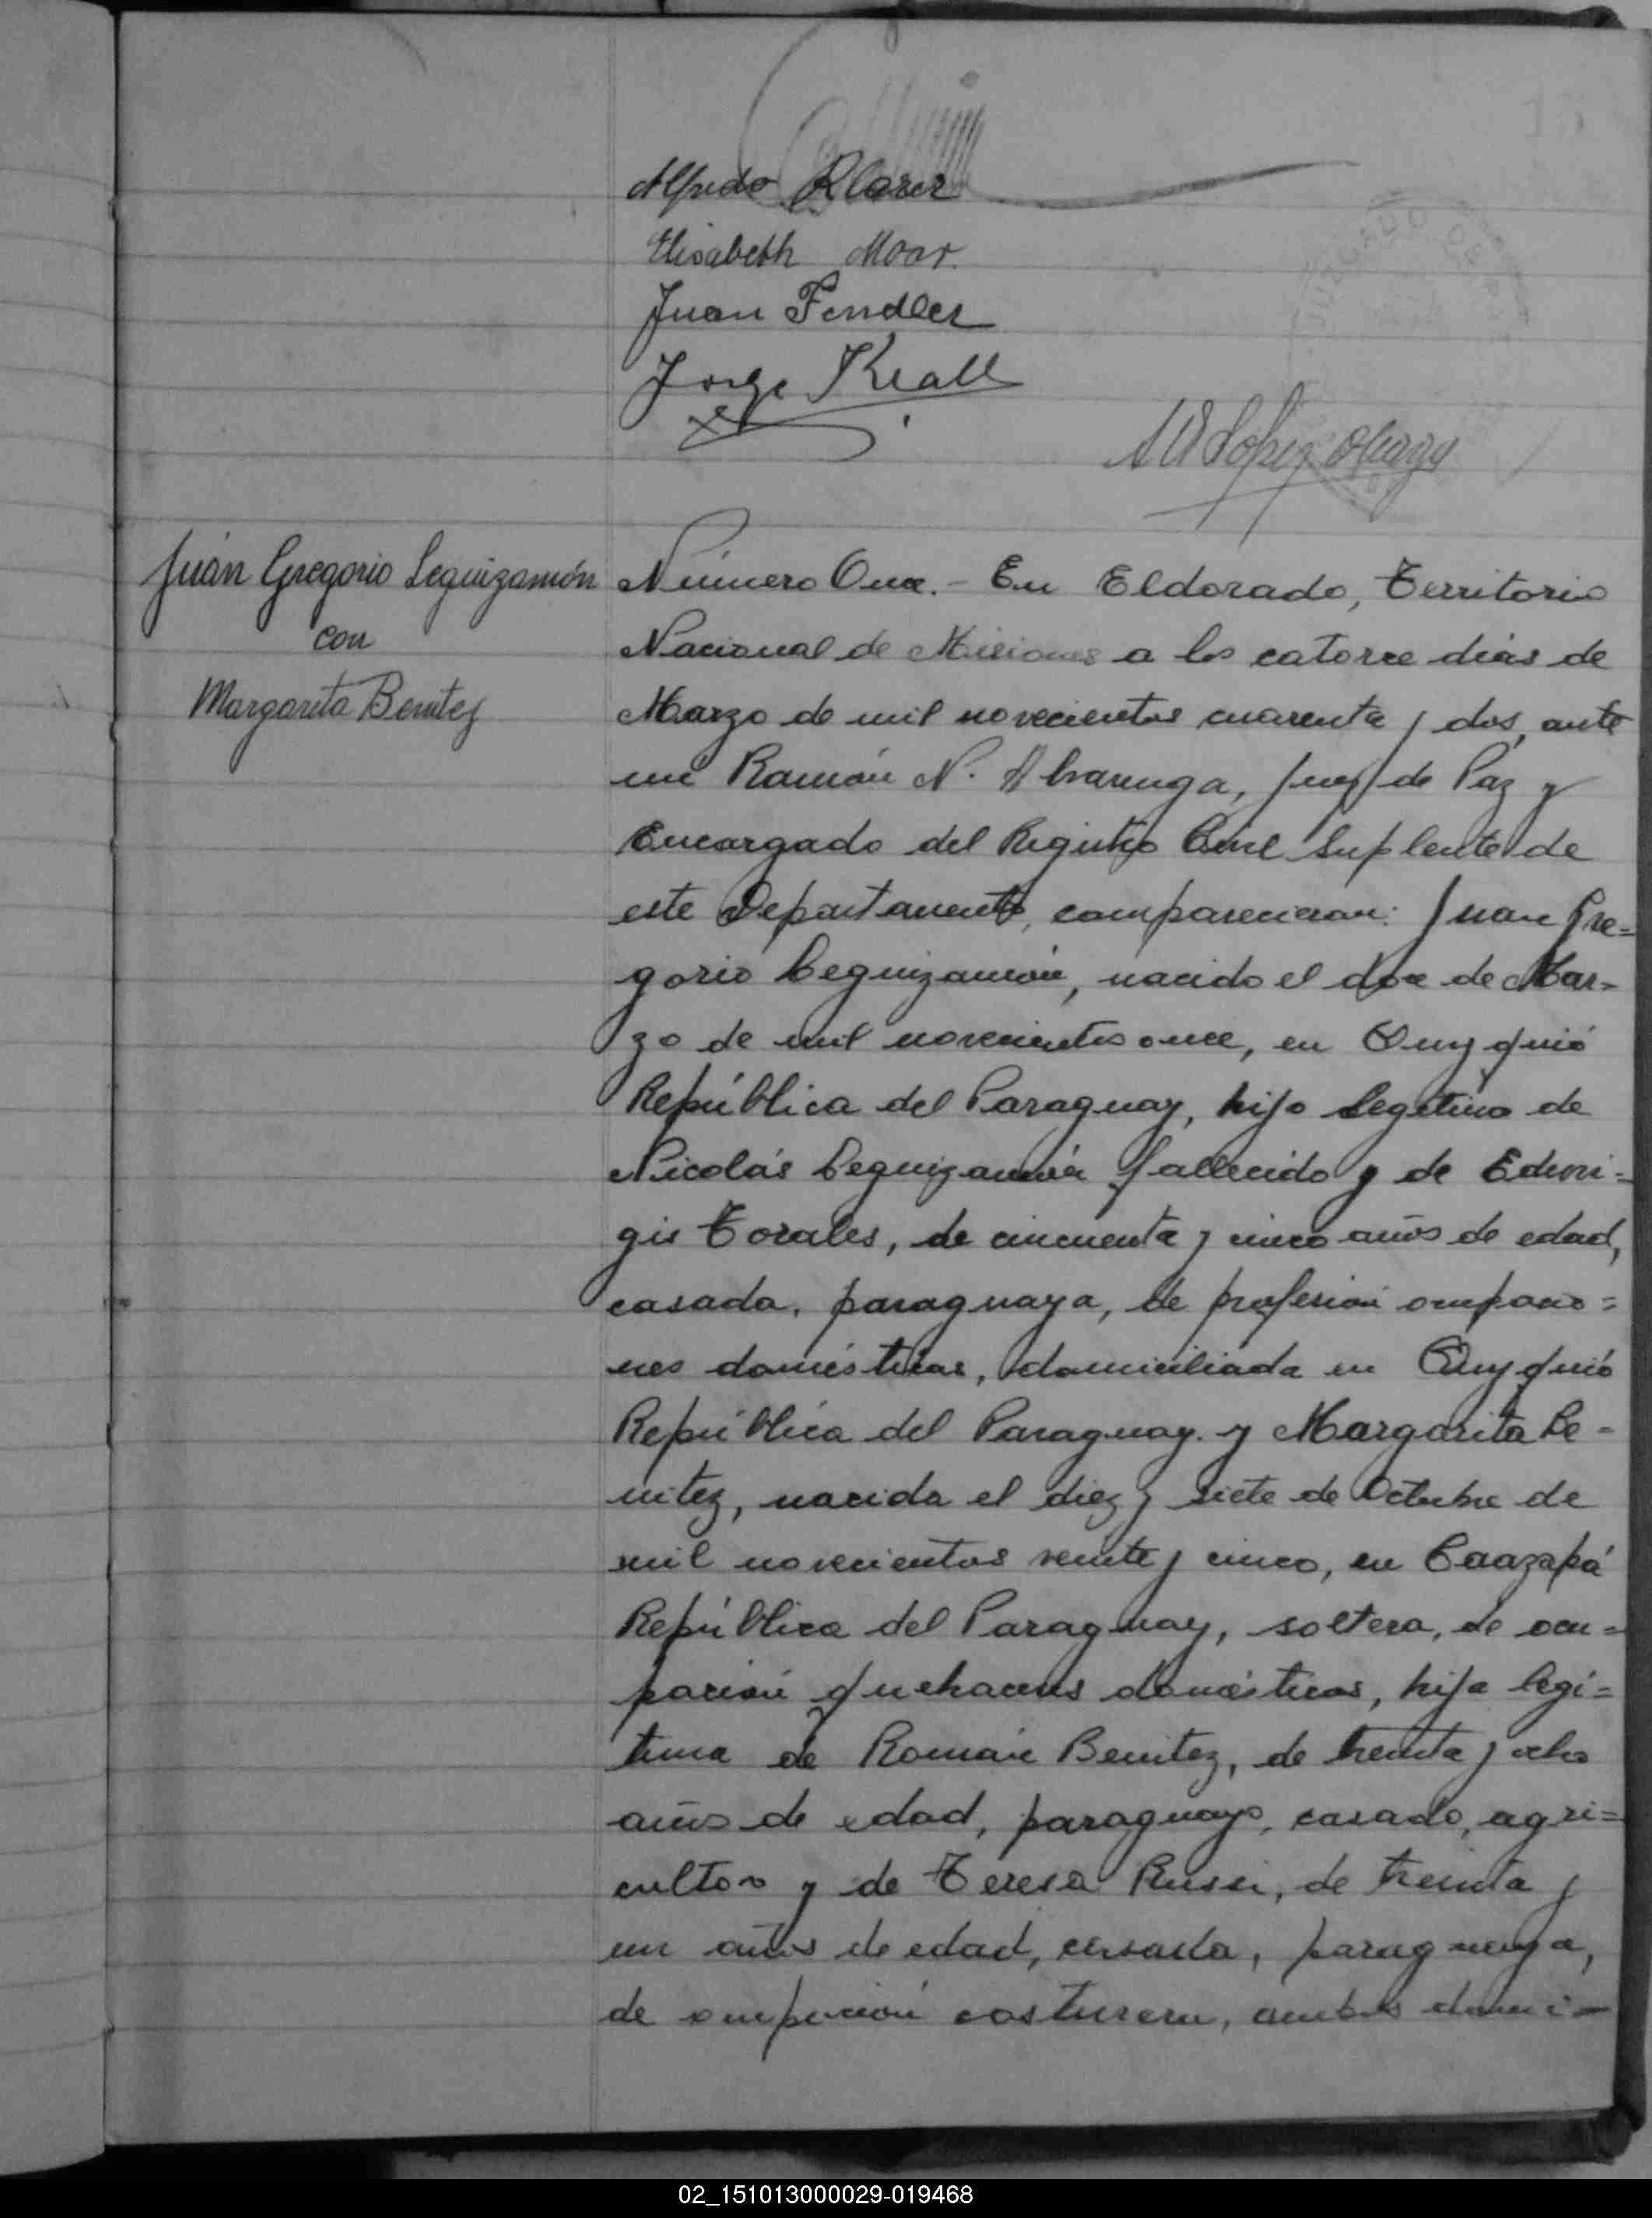 15
Alfredo Klarer
Elisabeth Moor.
Juan Fendler
Jorge Krall
López
Juan Gregorio Leguizamón
con
Margarita Benitez
Número Once.- En Eldorado, Territorio
Nacional de Misiones a los catorce días de
Marzo de mil novecientos cuarenta y dos, ante
mi Ramón N. Alvarenga, Juez de Paz y
Encargado del Registro Civil Suplente de
este Departamento, comparecieron: Juan Gre=
gorio Leguizamón, nacido el doce de Mar=
zo de mil novecientos once, en Quyquió
República del Paraguay, hijo legítimo de
Nicolás Leguizamón fallecido y de Eduvi=
gis Torales, de cincuenta y cinco años de edad,
casada, paraguaya, de profesión ocupacio=
nes domésticas, domiciliada en Quyquió
República del Paraguay. y Margarita Be=
nitez, nacida el diez y siete de Octubre de
mil novecientos veinte y cinco, en Caazapá
República del Paraguay, soltera, de ocu=
pación quehaceres domésticos, hija legí=
tima de Román Benitez, de treinta y ocho
años de edad, paraguayo, casado, agri=
cultor y de Teresa Russi, de treinta y
un años de edad, casada, paraguaya,
de ocupación costurera, ambos domi=
02_151013000029-019468